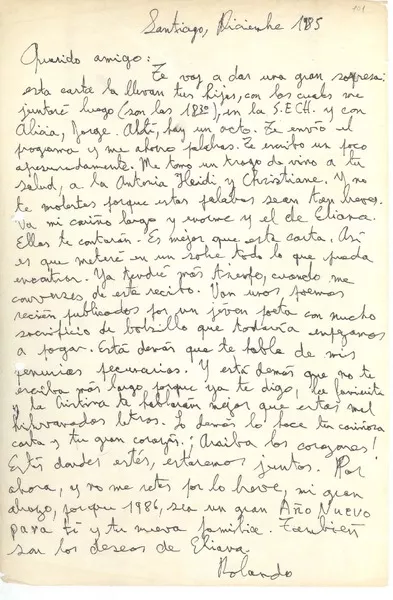 101
Santiago, Diciembre 1985
Querido amigo:
Te voy a dar una gran sorpresa:
esta carta la llevan tus hijos, con los cuales me
juntaré luego (son las 1830), en la S.ECH. y con
Alicia, Jorge. Allí, hay un acto. Te envío el
programa y me ahorro palabras. Te escribo un poco
apresuradamente. Me tomo un trago de vino a tu
salud, a la Antonia Heidi y Christiane. Y no
te molestes porque estas palabras sean tan breves.
Va mi cariño largo y enorme y el de Eliana.
Ellos te contarán. Es mejor que esta carta. Así
es que meteré en un sobre todo lo que pueda
encontrar. Ya tendré más tiempo, cuando me
converses de este recibo. Van unos poemas
recién publicados por un joven poeta con mucho
sacrificio de bolsillo que todavía empezamos
a pagar. Está demás que te hable de mis
penurias pecuniarias. Y está demás que no te
escriba más largo porque ya te digo, la
y la Cristina te hablarán mejor que estas mil
hilvanadas letras. Lo demás lo hace tu cariñosa
carta y tu gran corazón. ¡Arriba los corazones!
Estés donde estés, estaremos juntos. Por
ahora, y no me retes por lo breve, mi gran
abrazo, porque 1986, sea un gran Año Nuevo
para ti y tu nueva familia. También
son los deseos de Eliana.
Rolando